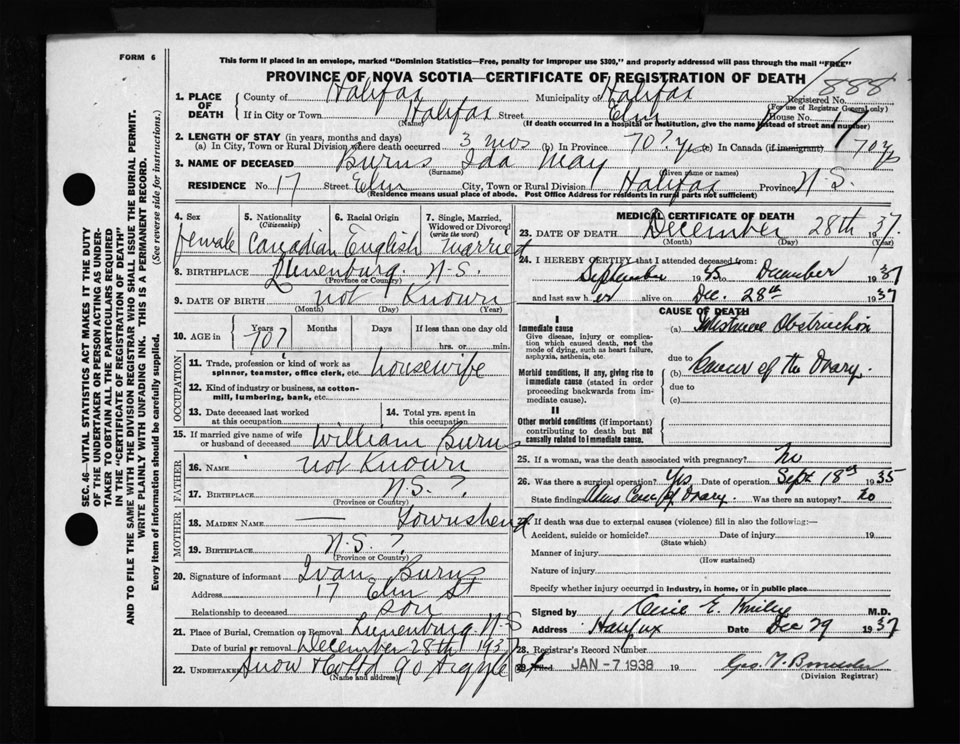 FORM 6
This form if placed in an envelope, marked "Dominion Statistics—Free, penalty for improper use $300," and properly addressed will pass through the mail "FREE"
PROVINCE OF NOVA SCOTIA—CERTIFICATE OF REGISTRATION OF DEATH
1. PLACE OF DEATH County of Halifax Municipality of Halifax Registered No. 888
(For use of Registrar General only)
If in City or Town Halifax Street Elm House No. 17
(Name) (If death occurred in a hospital or institution, give the name instead of street and number)
2. LENGTH OF STAY (in years, months and days)
(a) In City, Town or Rural Division where death occurred 3 mos (b) In Province 70? yrs (c) In Canada (if immigrant) 70 yrs
3. NAME OF DECEASED Burns Ida May
(Surname) (Given name or names)
RESIDENCE No. 17 Street Elm City, Town or Rural Division Halifax Province N.S.
(Residence means usual place of abode. Post Office Address for residents in rural parts not sufficient)
4. Sex female
5. Nationality (Citizenship) Canadian
6. Racial Origin English
7. Single, Married, Widowed or Divorced (write the word) Married
8. BIRTHPLACE Lunenburg. N.S.
(Province or Country)
9. DATE OF BIRTH not Known
(Month) (Day) (Year)
10. AGE in Years 70? Months Days If less than one day old
hrs. or min.
OCCUPATION
11. Trade, profession or kind of work as spinner, teamster, office clerk, etc. housewife
12. Kind of industry or business, as cotton-mill, lumbering, bank, etc.
13. Date deceased last worked at this occupation
14. Total yrs. spent in this occupation
15. If married give name of wife or husband of deceased William Burns
FATHER
16. NAME not Known
17. BIRTHPLACE N.S.?
(Province or Country)
MOTHER
18. MAIDEN NAME — Townshend
19. BIRTHPLACE N.S.?
(Province or Country)
20. Signature of informant Ivan Burns
Address 17 Elm St
Relationship to deceased son
21. Place of Burial, Cremation or Removal Lunenburg N.S
Date of burial or removal December 28th 1937
22. UNDERTAKER Snow & Co Ltd 90 Argyle St
(Name and address)
MEDICAL CERTIFICATE OF DEATH
23. DATE OF DEATH December 28th 1937.
(Month) (Day) (Year)
24. I HEREBY CERTIFY that I attended deceased from:
September 1935 December 1937
and last saw her alive on Dec. 28th 1937
CAUSE OF DEATH
I
Immediate cause
Give disease, injury or complication which caused death, not the mode of dying, such as heart failure, asphyxia, asthenia, etc.
(a) Intestinal Obstruction
due to
Morbid conditions, if any, giving rise to immediate cause (stated in order proceeding backwards from immediate cause).
(b) Cancer of the Ovary.
due to
(c)
II
Other morbid conditions (if important) contributing to death but not causally related to immediate cause.
25. If a woman, was the death associated with pregnancy? No
26. Was there a surgical operation? Yes Date of operation Sept 18th 1935
State finding of Ovary. Was there an autopsy? no
27. If death was due to external causes (violence) fill in also the following:—
Accident, suicide or homicide? Date of injury 19
(State which)
Manner of injury
(How sustained)
Nature of injury
Specify whether injury occurred in industry, in home, or in public place
Signed by M.D.
Address Halifax Date Dec 29 1937
28. Registrar's Record Number
29. Filed JAN -7 1938 19
(Division Registrar)
SEC. 46—VITAL STATISTICS ACT MAKES IT THE DUTY
OF THE UNDERTAKER OR PERSON ACTING AS UNDER-
TAKER TO OBTAIN ALL THE PARTICULARS REQUIRED
IN THE "CERTIFICATE OF REGISTRATION OF DEATH"
AND TO FILE THE SAME WITH THE DIVISION REGISTRAR WHO SHALL ISSUE THE BURIAL PERMIT.
WRITE PLAINLY WITH UNFADING INK. THIS IS A PERMANENT RECORD.
Every item of information should be carefully supplied. (See reverse side for instructions.)